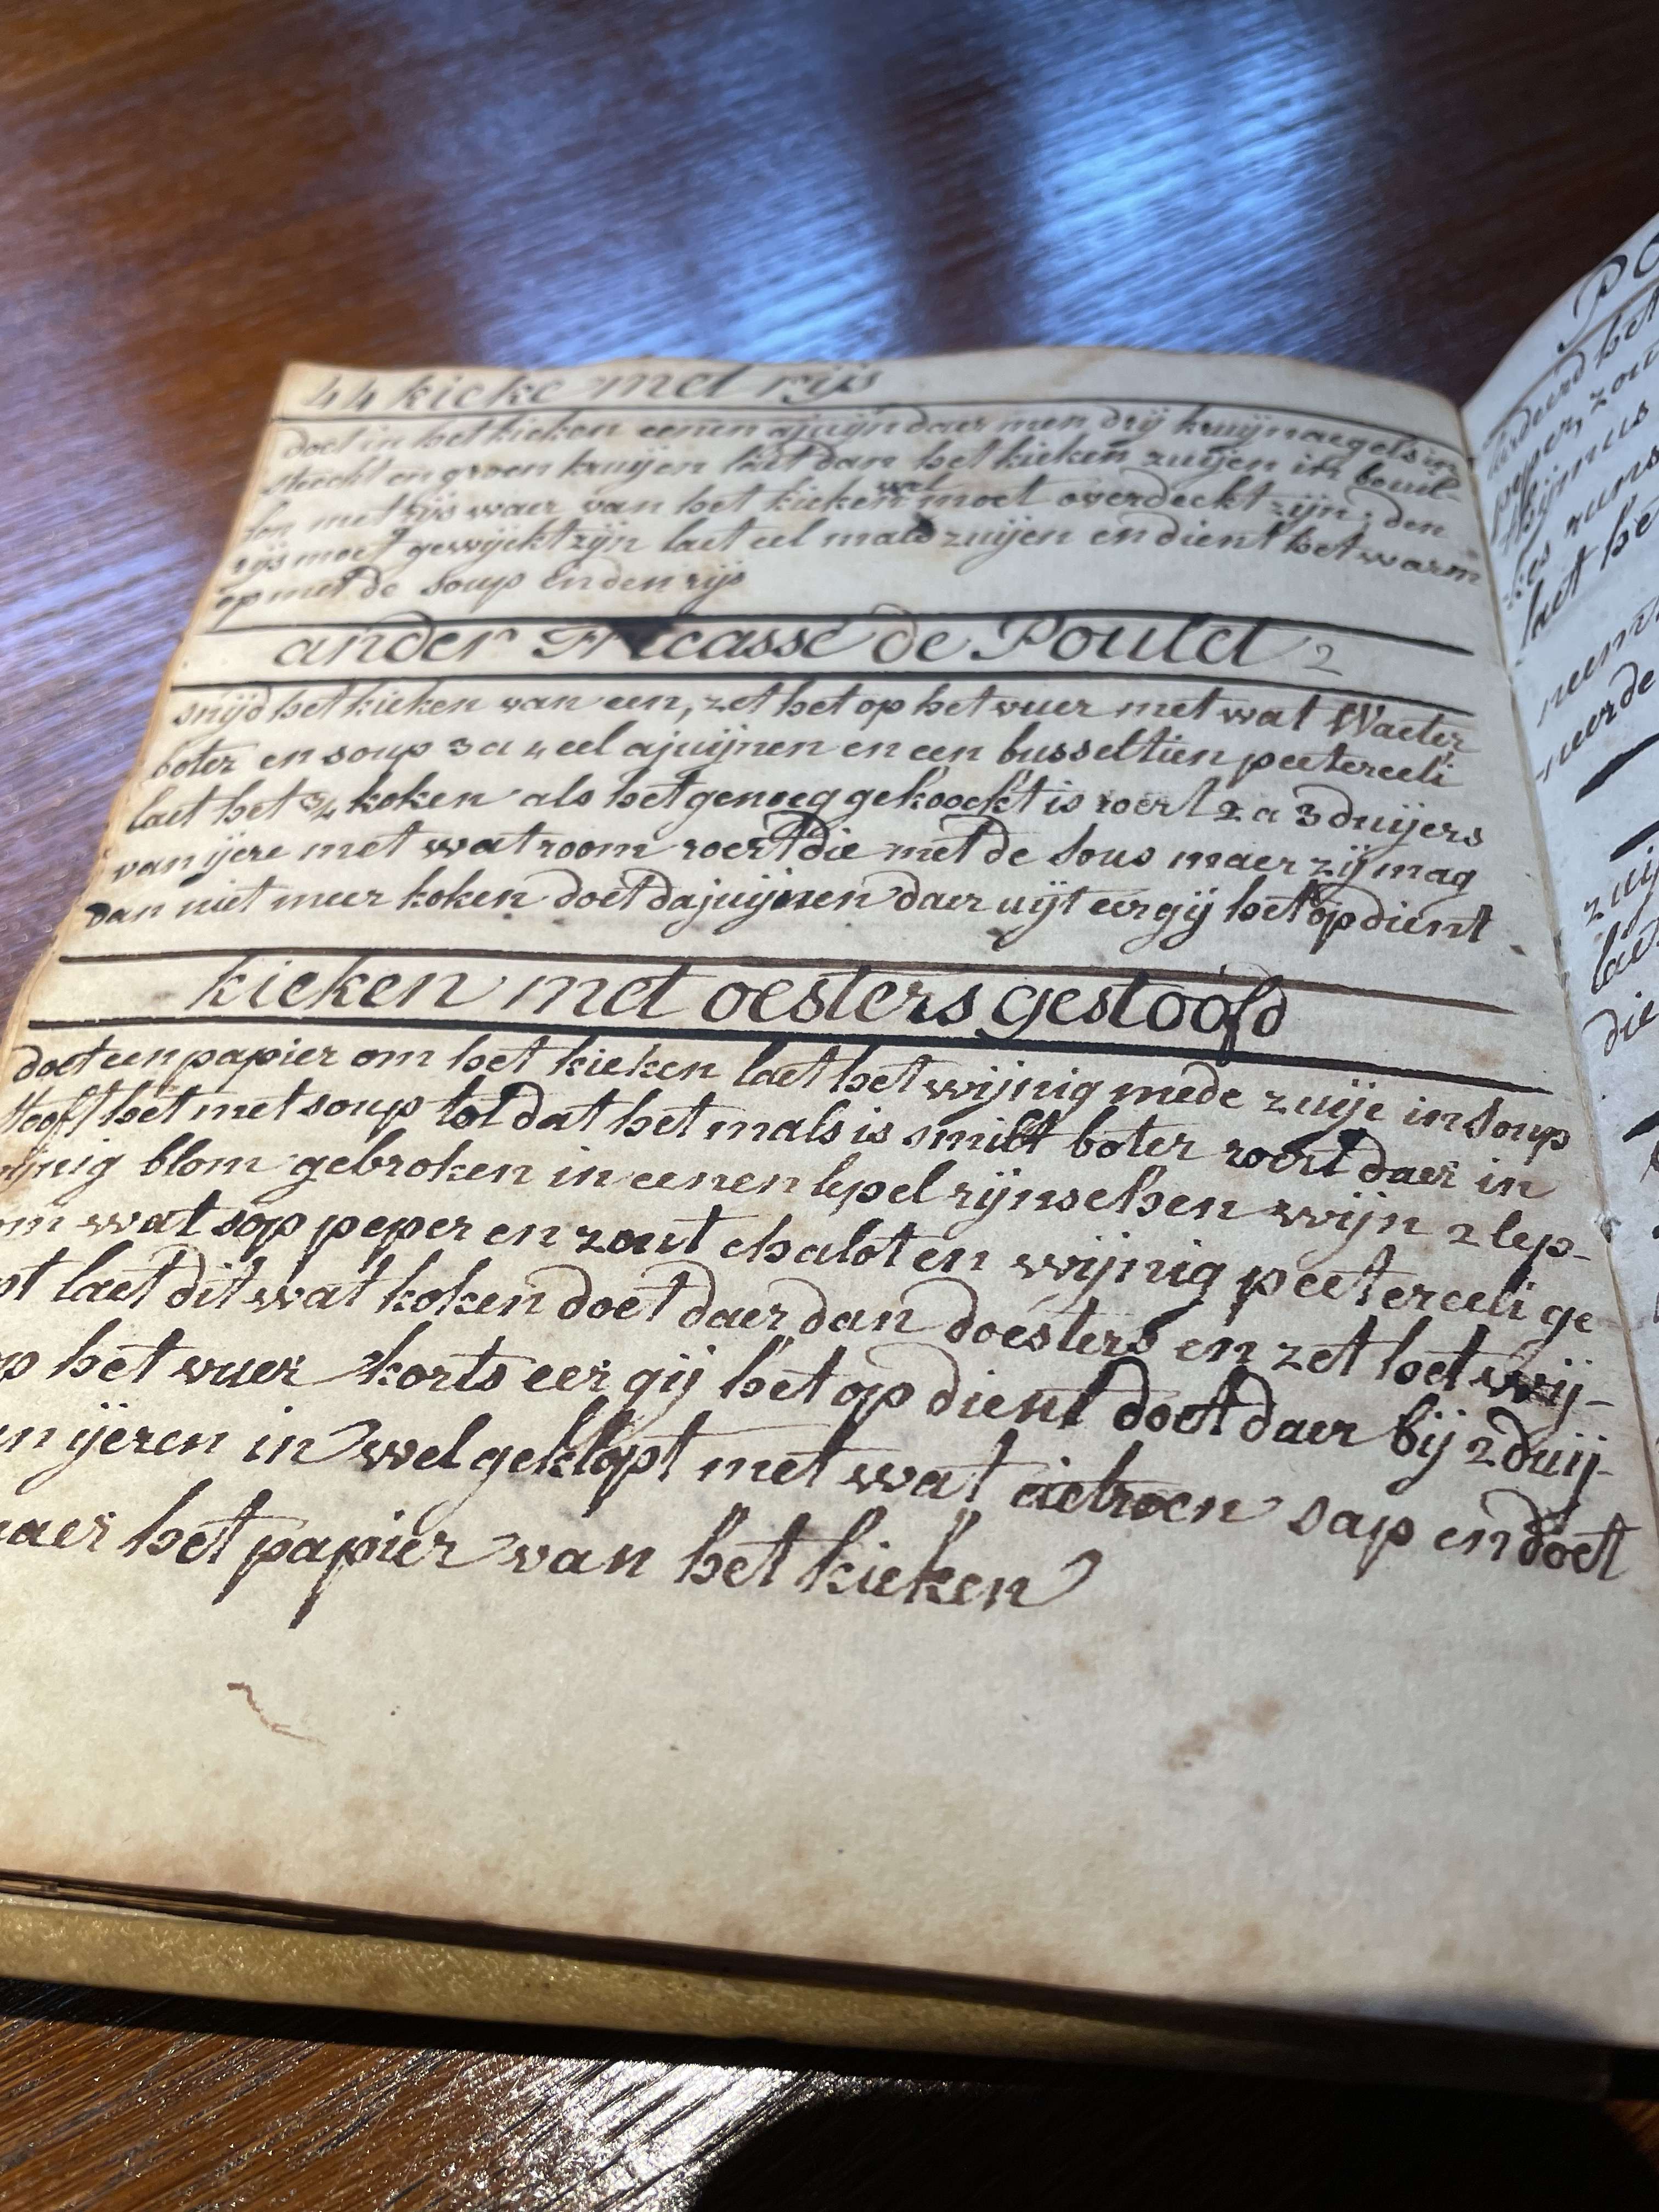 44 kieke met rijs
doet in het kieken eenen ajuijn daer men drij kruijnaegels in
steckt en groen kruijen laet dan het kieken zuijen in bouil-
lon met rijs waer van het kieken wel moet overdeckt zijn; den
rijs moet geweijckt zijn laet eel mals zuijen en dient het warm
op met de soup en den rijs
ander Fricassé de Poulet 2
snijd het kieken van een, zet het op het vuer met wat Waeter
boter en soup 3 a 4 eel ajuijnen en een busseltien peeterceli
laet het 3/4 koken als het genoeg gekoockt is roert 2 a 3 duijers
van ijere met wat room roert die met de sous maer zij mag
dan niet meer koken doet dajuijnen daer uijt eer gij het op dient
kieken met oesters gestoofd
doet een papier om het kieken laet het wijnig mede zuije in soup
stooft het met soup tot dat het mals is smilt boter roert daer in
wijnig blom gebroken in eenen lepel rijnschen wijn 2 lep-
om wat sop peper en zout chalot en wijnig peeterceli ge
pt laet dit wat koken doet daer dan doesters en zet het wij-
op het vuer korts eer gij het op dient doet daer bij 2 duij-
n ijeren in wel geklopt met wat citroen sap en doet
naer het papier van het kieken
Po
peper, zou
thijmus
laet he
neemt
zuij
laet
die